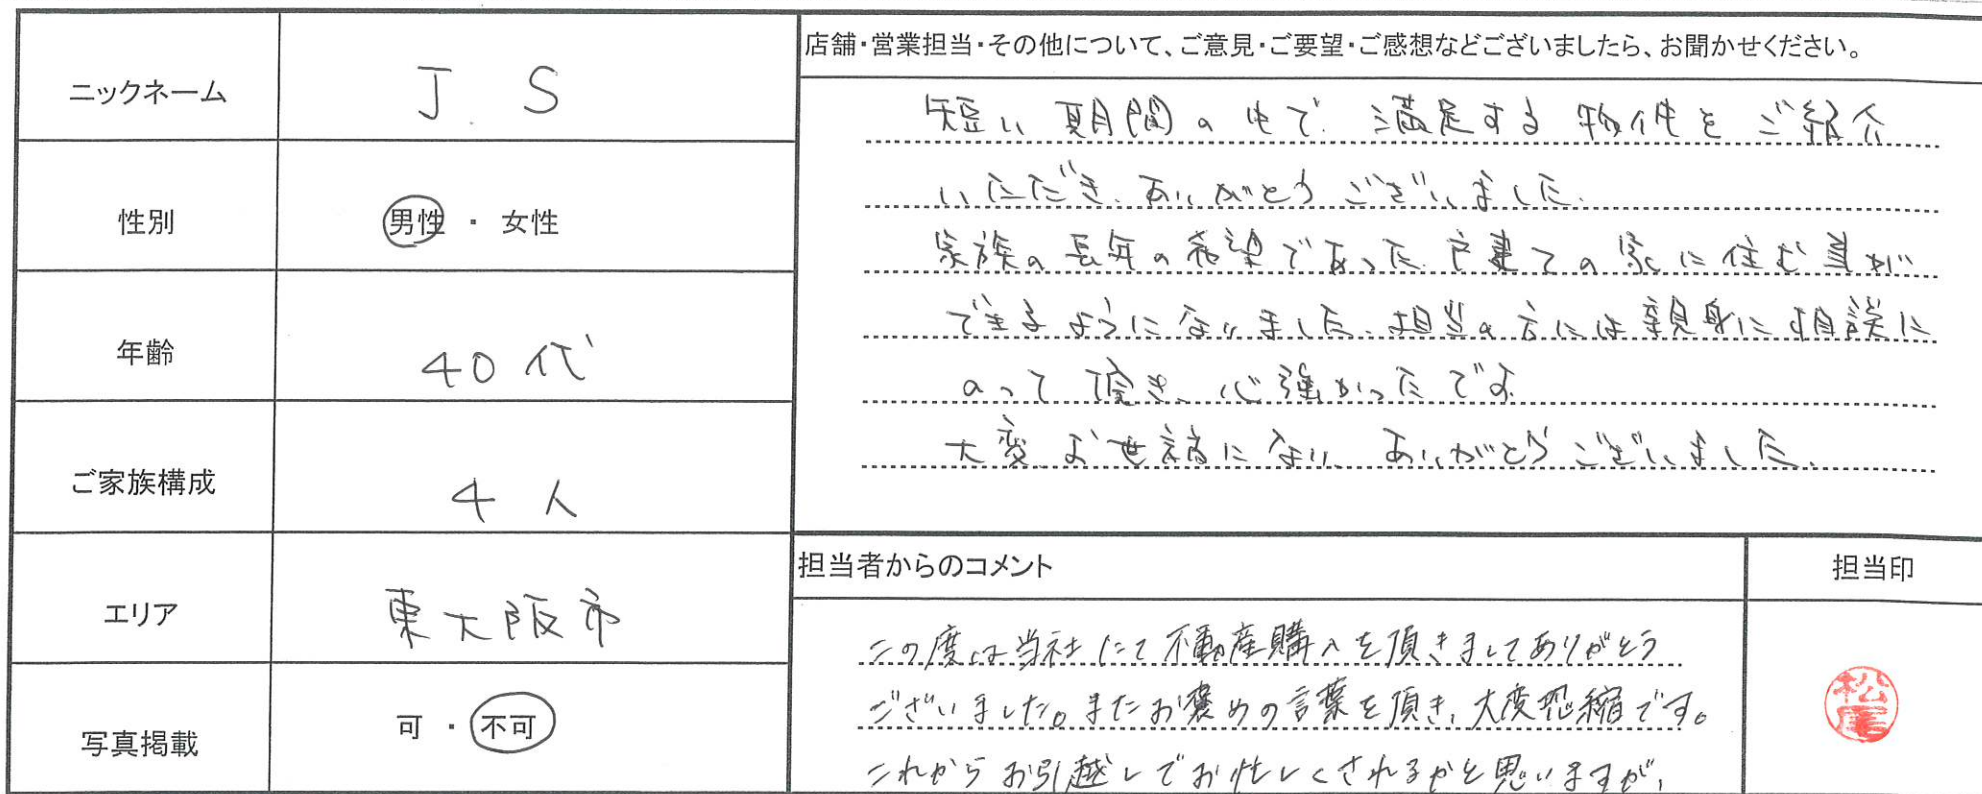 ニックネーム
J S
性別
男性 ・ 女性
年齢
40代
ご家族構成
4人
エリア
東大阪市
写真掲載
可 ・ 不可
店舗・営業担当・その他について、ご意見・ご要望・ご感想などございましたら、お聞かせください。
短い期間の中で、満足する物件をご紹介
いただき、ありがとうございました。
家族の長年の希望であった戸建ての家に住む事が
できるようになりました。担当の方には親身に相談に
のって頂き、心強かったです。
大変お世話になり、ありがとうございました。
担当者からのコメント
この度は当社にて不動産購入を頂きましてありがとう
ございました。またお褒めの言葉を頂き、大変恐縮です。
これからお引越しでお忙しくされるかと思いますが、
担当印
松尾